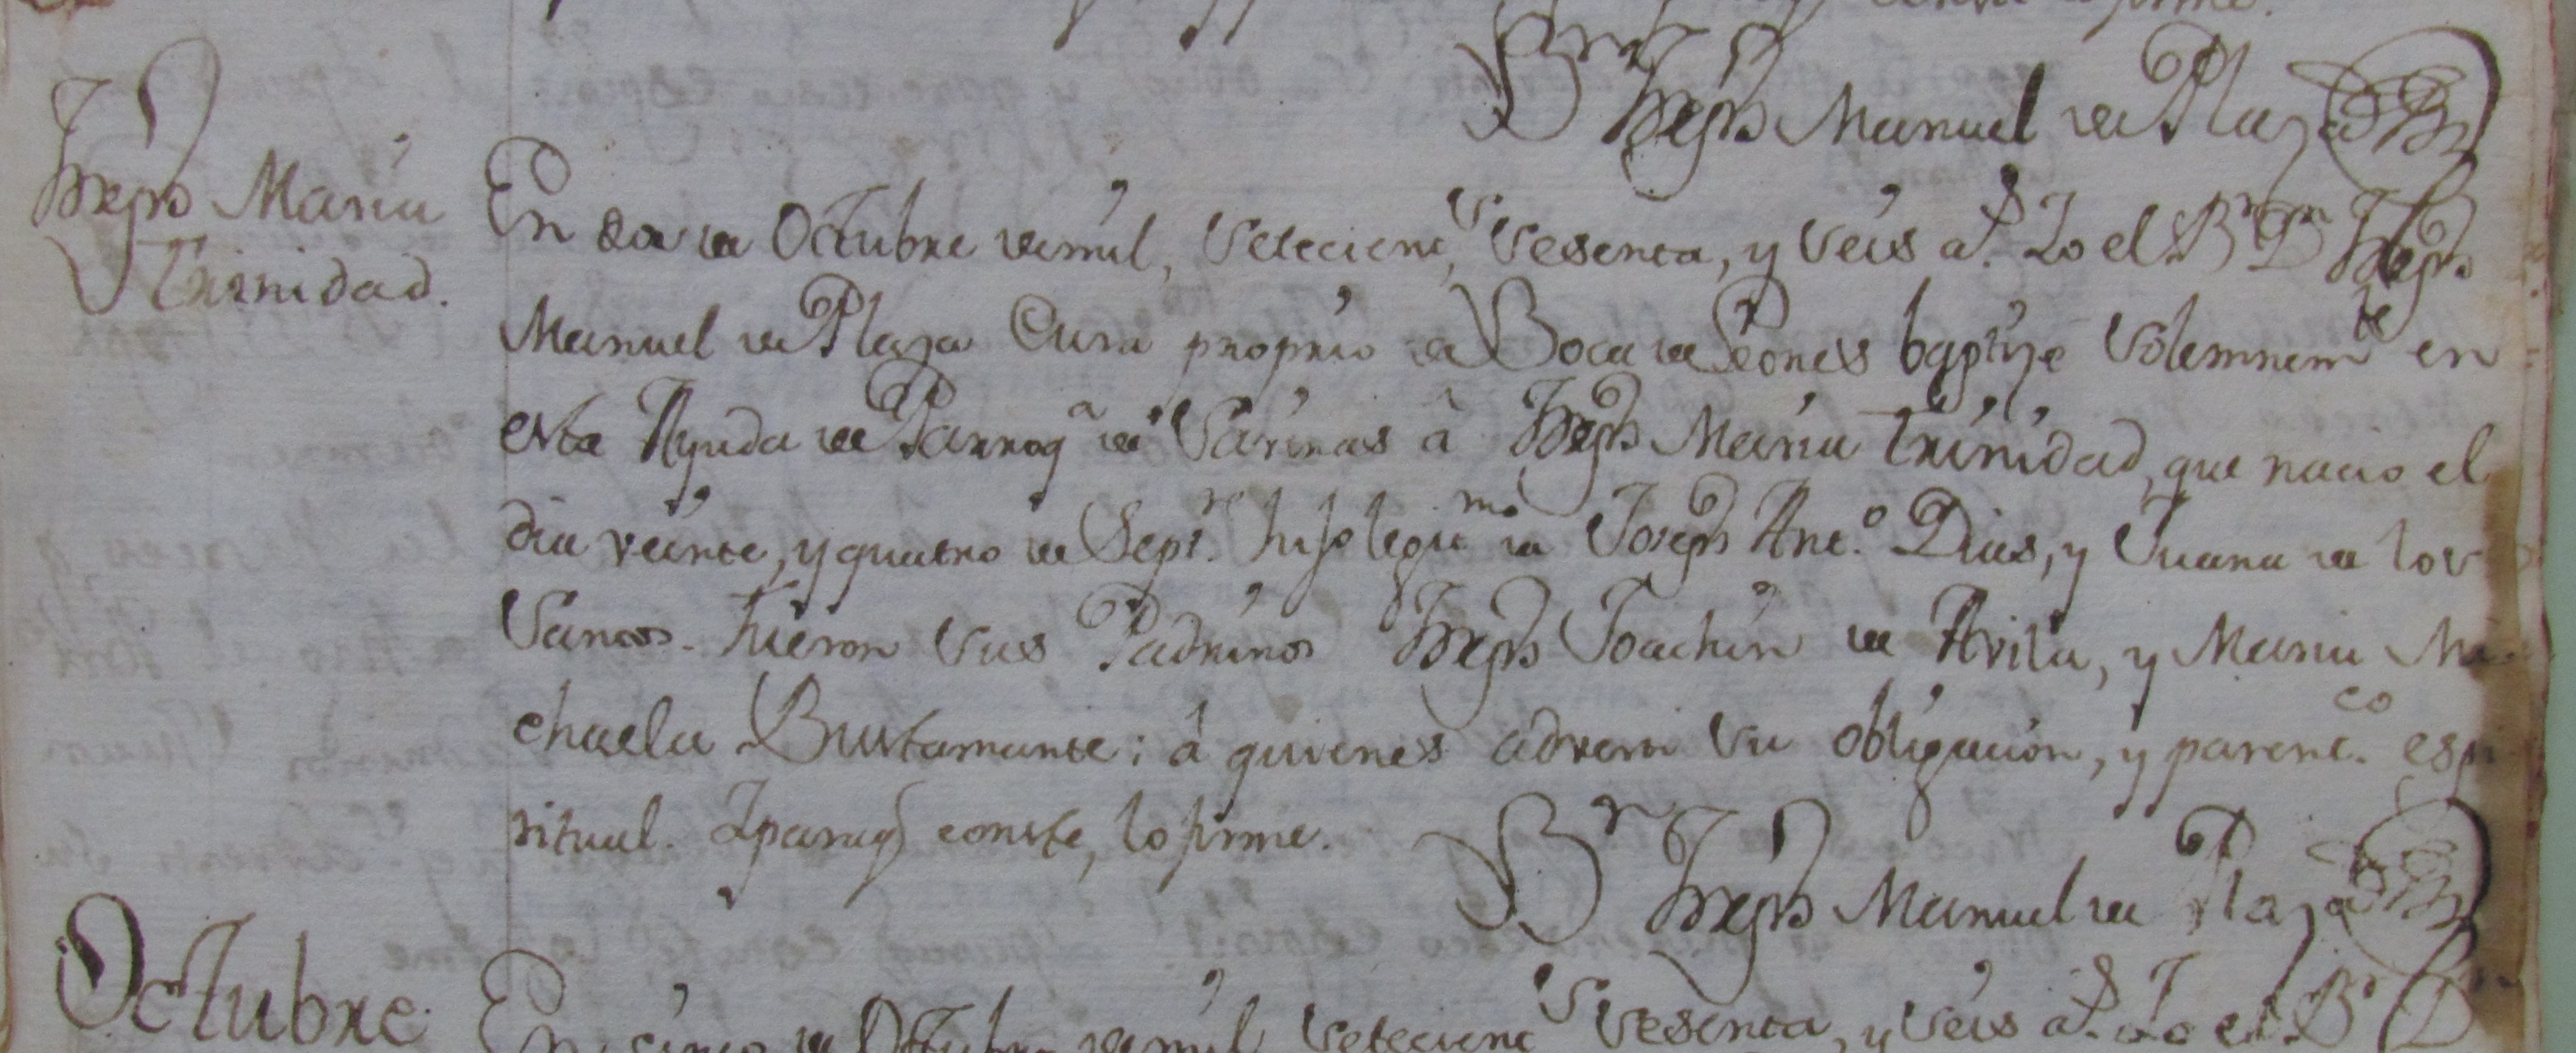 conste lo firme.
Br Joseph Manuel de Plaza
Joseph Maria
Trinidad.
En dos de Octubre demil, Setecients Sesenta, y Seis as. Yo el Br Dn Joseph
Manuel de Plaza Cura proprio de Boca de Leones baptize Solemnemte en
esta Ayuda de Parroqa de Sarinas â Joseph Maria Trinidad, que nacio el
dia veinte, y quatro de Sepre. hijo legitmo de Joseph Anto. Dias, y Juana de los
Santos. Fueron Sus Padrinos Joseph Joachin de Avila, y Maria Mi
chaela Bustamante; â quienes adverti Su obligacion, y parentco. espi
ritual. Yparaq conste, lo firme.
Br Joseph Manuel de Plaza
Octubre
En cinco de Octubre demil Setecients Sesenta, y Seis as. Yo el Br Dn